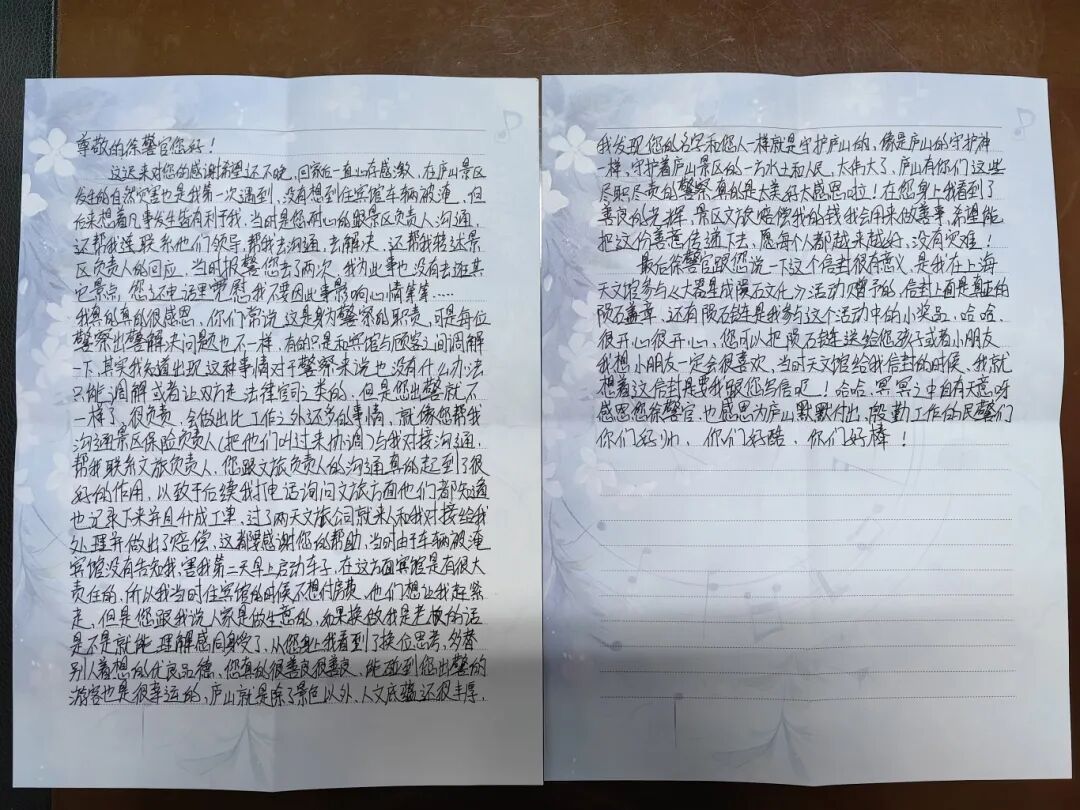 尊敬的徐警官您好！
这迟来对您的感谢希望还不晚，回家后一直心存感激，在庐山景区
发生的自然灾害也是我第一次遇到，没有想到住宾馆车辆被淹，但
后来想着凡事发生皆有利于我，当时是您耐心的跟景区负责人沟通，
还帮我连联系他们领导帮我去沟通，去解决，还帮我转达景
区负责人的回应，当时报警您去了两次，我为此事也没有去逛其
它景点，您还电话里安慰我不要因此事影响心情等等……
我真的真的很感恩，你们常说这是身为警察的职责，可是每位
警察出警解决问题也不一样，有的只是和宾馆与顾客之间调解
一下，其实我知道出现这种事情对于警察来说也没有什么办法
只能调解或者让双方走法律官司之类的，但是您出警就不
一样了，很负责，会做出比工作之外还多的事情，就像您帮我
沟通景区保险负责人（把他们叫过来协调）与我对接沟通，
帮我联系文旅负责人，您跟文旅负责人的沟通真的起到了很
好的作用，以致于后续我打电话询问文旅方面他们都知道
也记录下来并且升成工单，过了两天文旅公司就来人和我对接给我
处理并做出了赔偿，这都要感谢您的帮助，当时由于车辆被淹
宾馆没有告知我，害我第二天早上启动车子，在这方面宾馆是有很大
责任的，所以我当时住宾馆的时候不想付房费，他们想让我赶紧
走，但是您跟我说人家是做生意的，如果换做我是老板的话
是不是就能理解感同身受了，从您身上我看到了换位思考，多替
别人着想的优良品德，您真的很善良很善良，能碰到您出警的
游客也是很幸运的，庐山就是除了景色以外，人文底蕴还很丰厚，
我发现您的名字和您人一样就是守护庐山的，像是庐山的守护神
一样，守护着庐山景区的一方水土和人民，太伟大了，庐山有你们这些
尽职尽责的警察真的是太美好太感恩啦！在您身上我看到了
善良的光辉，景区文旅赔偿我的钱我会用来做善事，希望能
把这份善意传递下去，愿每个人都越来越好，没有灾难！
最后徐警官跟您说一下这个信封很有意义，是我在上海
天文馆参与《大器星成陨石文化》活动赠予的，信封上面是真正的
陨石盖章，还有陨石链是我参与这个活动中的小奖品，哈哈，
很开心很开心，您可以把陨石链送给您孩子或者小朋友
我想小朋友一定会很喜欢，当时天文馆给我信封的时候，我就
想着这信封是要我跟您写信吧！哈哈，冥冥之中自有天意呀
感恩您徐警官，也感恩为庐山默默付出，殷勤工作的民警们
你们好帅，你们好酷，你们好棒！